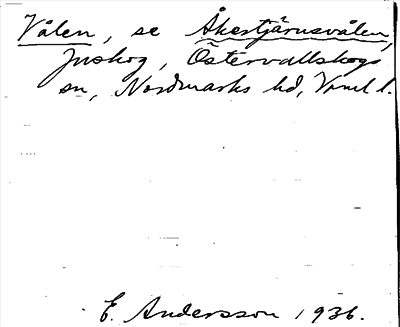 Vålen, se Åkertjärnsvålen,
Inskog, Östervallskogs
sn, Nordmarks hd, Vrml l.
E. Andersson 1936.